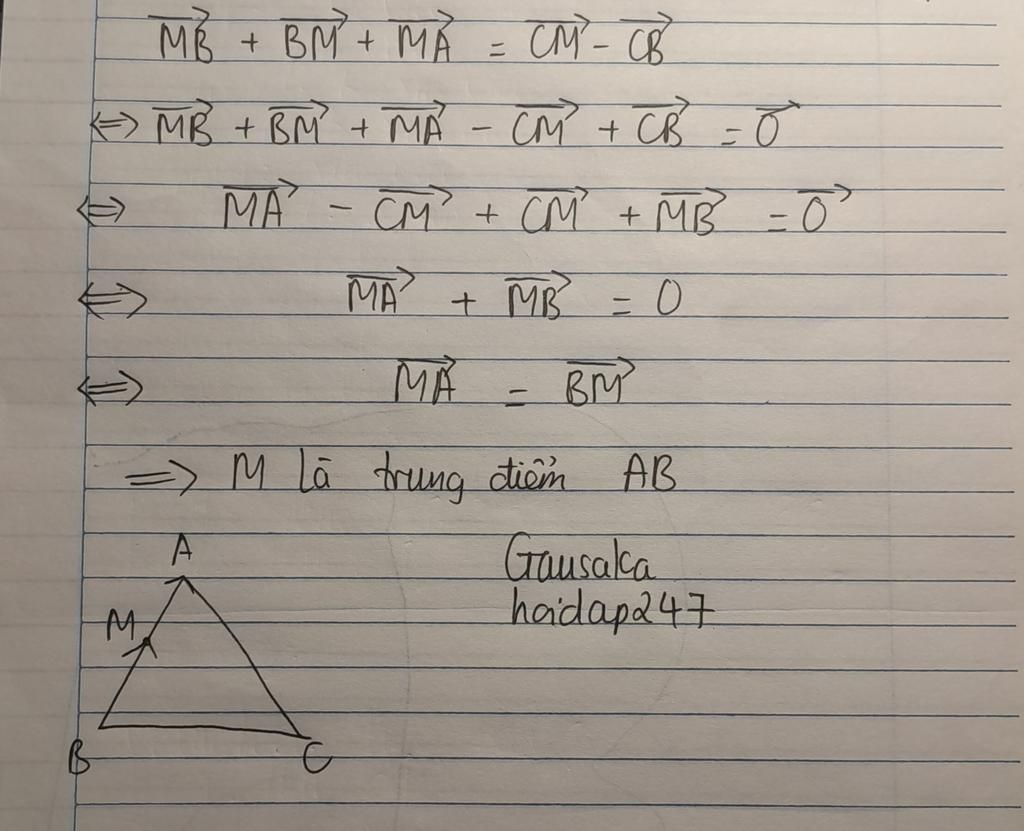 $\overrightarrow{MB} + \overrightarrow{BM} + \overrightarrow{MA} = \overrightarrow{CM} - \overrightarrow{CB}$
$\Leftrightarrow \overrightarrow{MB} + \overrightarrow{BM} + \overrightarrow{MA} - \overrightarrow{CM} + \overrightarrow{CB} = \overrightarrow{0}$
$\Leftrightarrow \overrightarrow{MA} - \overrightarrow{CM} + \overrightarrow{CM} + \overrightarrow{MB} = \overrightarrow{0}$
$\Leftrightarrow \overrightarrow{MA} + \overrightarrow{MB} = 0$
$\Leftrightarrow \overrightarrow{MA} = \overrightarrow{BM}$
$\Rightarrow$ M là trung điểm AB
A
Gausaka
M
hoidap247
B
C